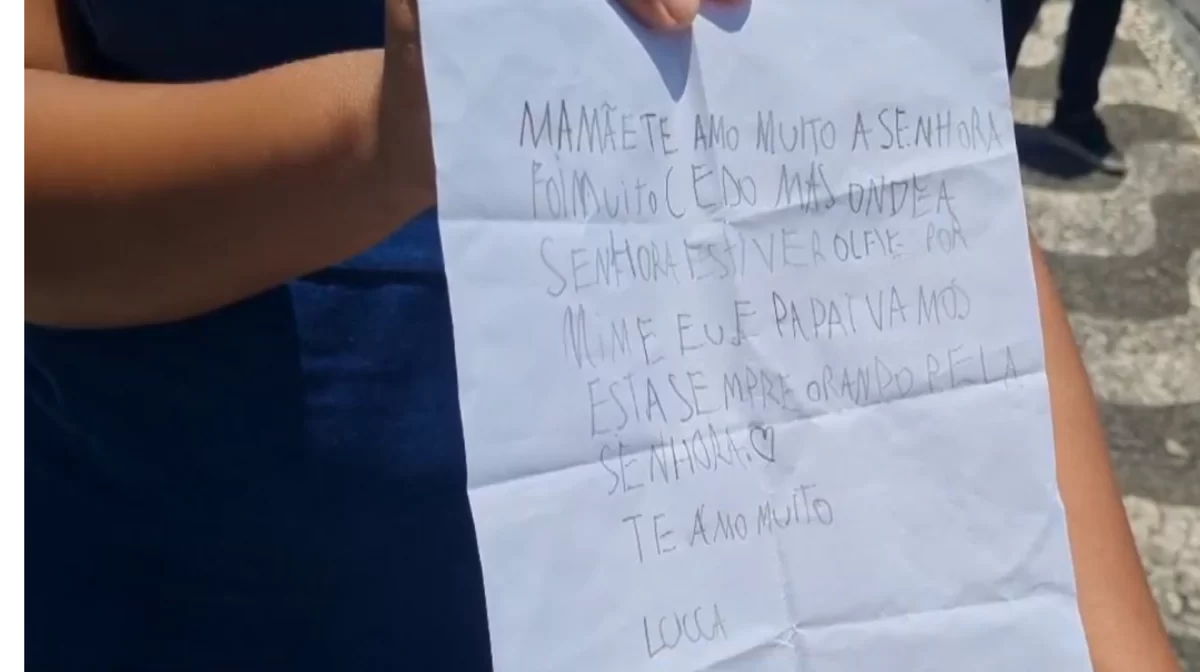 MAMÃE TE AMO MUITO A SENHORA
FOI MUITO CEDO MAS ONDE A
SENHORA ESTIVER OLHE POR
MIM E EU E PAPAI VAMOS
ESTA SEMPRE ORANDO PELA
SENHORA.♡
TE AMO MUITO
LUCCA